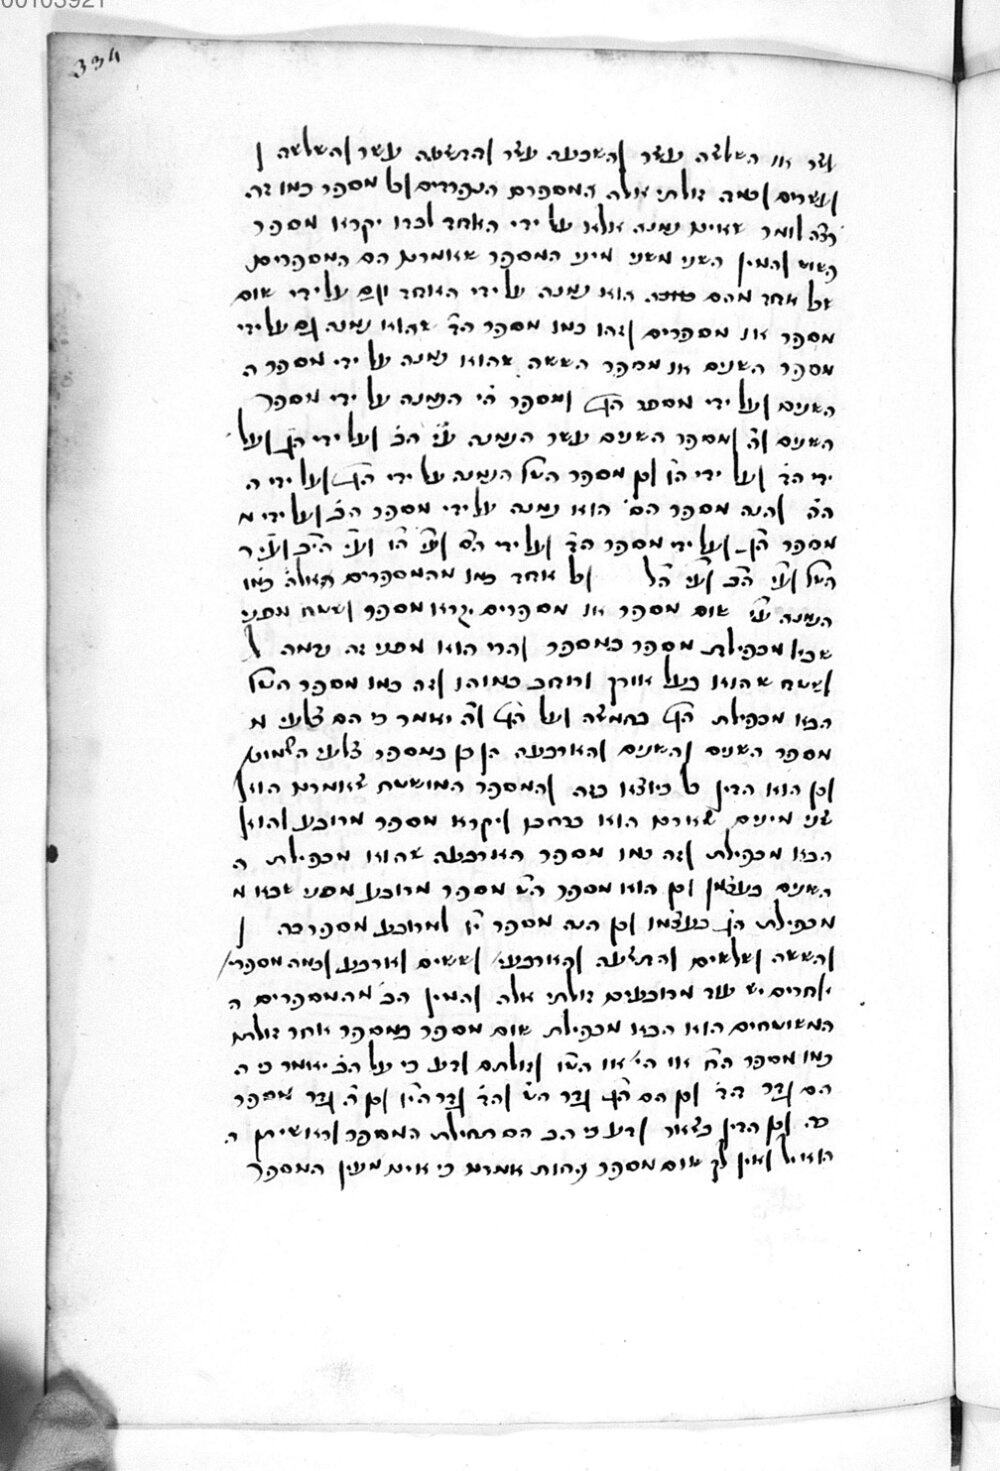 334
עשר או השלשה עשר והשבעה עשר והתשעה עשר והשלשה ו
ועשרים וכמה זולתי אלה המספרים הנפרדים וכל מספר כמו זה
רצה לומר שאינו נמנה אלא על ידי האחד לבדו יקרא מספר
והמין השני משני מיני המספר שאומרת הם המספרים
שכל אחד מהם הוא נמנה על ידי האחד וגם על ידי שום
מספר או מספרים וזהו כמו מספר הד' שהוא נמנה גם על ידי
מספר השנים או מספר הששה שהוא נמנה על ידי מספר ה
השנים ועל ידי מספר הג' ומספר הי' הנמנה על ידי מספר
השנים וה' ומספר השנים עשר הנמנה ע"י הב' ועל ידי הג' ועל
ידי הד' ועל ידי הו' וכן מספר הט"ו הנמנה על ידי הג' ועל ידי ה
הה' והנה מספר הס' הוא נמנה על ידי מספר הב' ועל ידי מ
מספר הג' ועל ידי מספר הד' ועל ידי הה' וע"י הו' וע"י הי"ב וע"י ה
הט"ו וע"י הכ' וע"י הל' וכל אחד כמו מהמספרים האלה כמו
הנמנה ע"י שום מספר או מספרים יקרא מספר ושטח מפני
שבא מכפילת מספר במספר והרי הוא מפני זה נדמה ל
לשטח שהוא בעל אורך ורוחב כמוהו וזה כמו מספר הט"ו
הבא מכפילת הג' בחמשה ועל הג' וה' יאמר כי הם צלעי מ
מספר השנים והשנים והארבעה הן כן במספר צלעי השמונה
וכן הוא הדין כל כיוצא בזה והמספר המושטח שאומרת הוא
שני מינים שארכו הוא כרחבו ויקרא מספר מרובע והוא
הבא מכפילת וזה כמו מספר הארבעה שהוא מכפילת ה
השנים בעצמן וכן הוא מספר הט' מספר מרובע מפני שבא מ
מכפילת הג' בעצמו וכן הנה מספר י"ו למרובע מספר כה ו
והששה ושלשים והתשעה והארבעי' וששים וארבע וכמה מספרי'
אחרים יש עוד מרובעים זולתי אלה והמין הב' מהמספרים ה
המשוטחים הוא הבא מכפילת שום מספר במספר אחר זולתו
כמו מספר הח' או הי' או הט"ו וזולתם ודע כי על הב' יאמר כי ה
הם גדר הד' וכן הם הג' גדר הט' והד' גדר הי"ו וכן ה' גדר מספר
כה וכן הדין בשאר ודע כי הב' הם תחילת המספר וראשיתו ה
הואיל ואין לך שום מספר פחות אמרם כי אינו מענין המספר